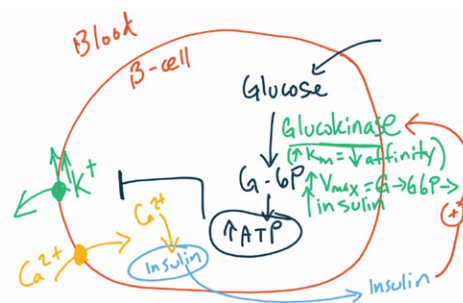 Blood
β-cell
Glucose
Glucokinase
(↑Km=↓affinity)
K+
G-6P
↑Vmax=G→G6P→
↑insulin
Ca2+
↑ATP
Ca2+
Insulin
Insulin
+